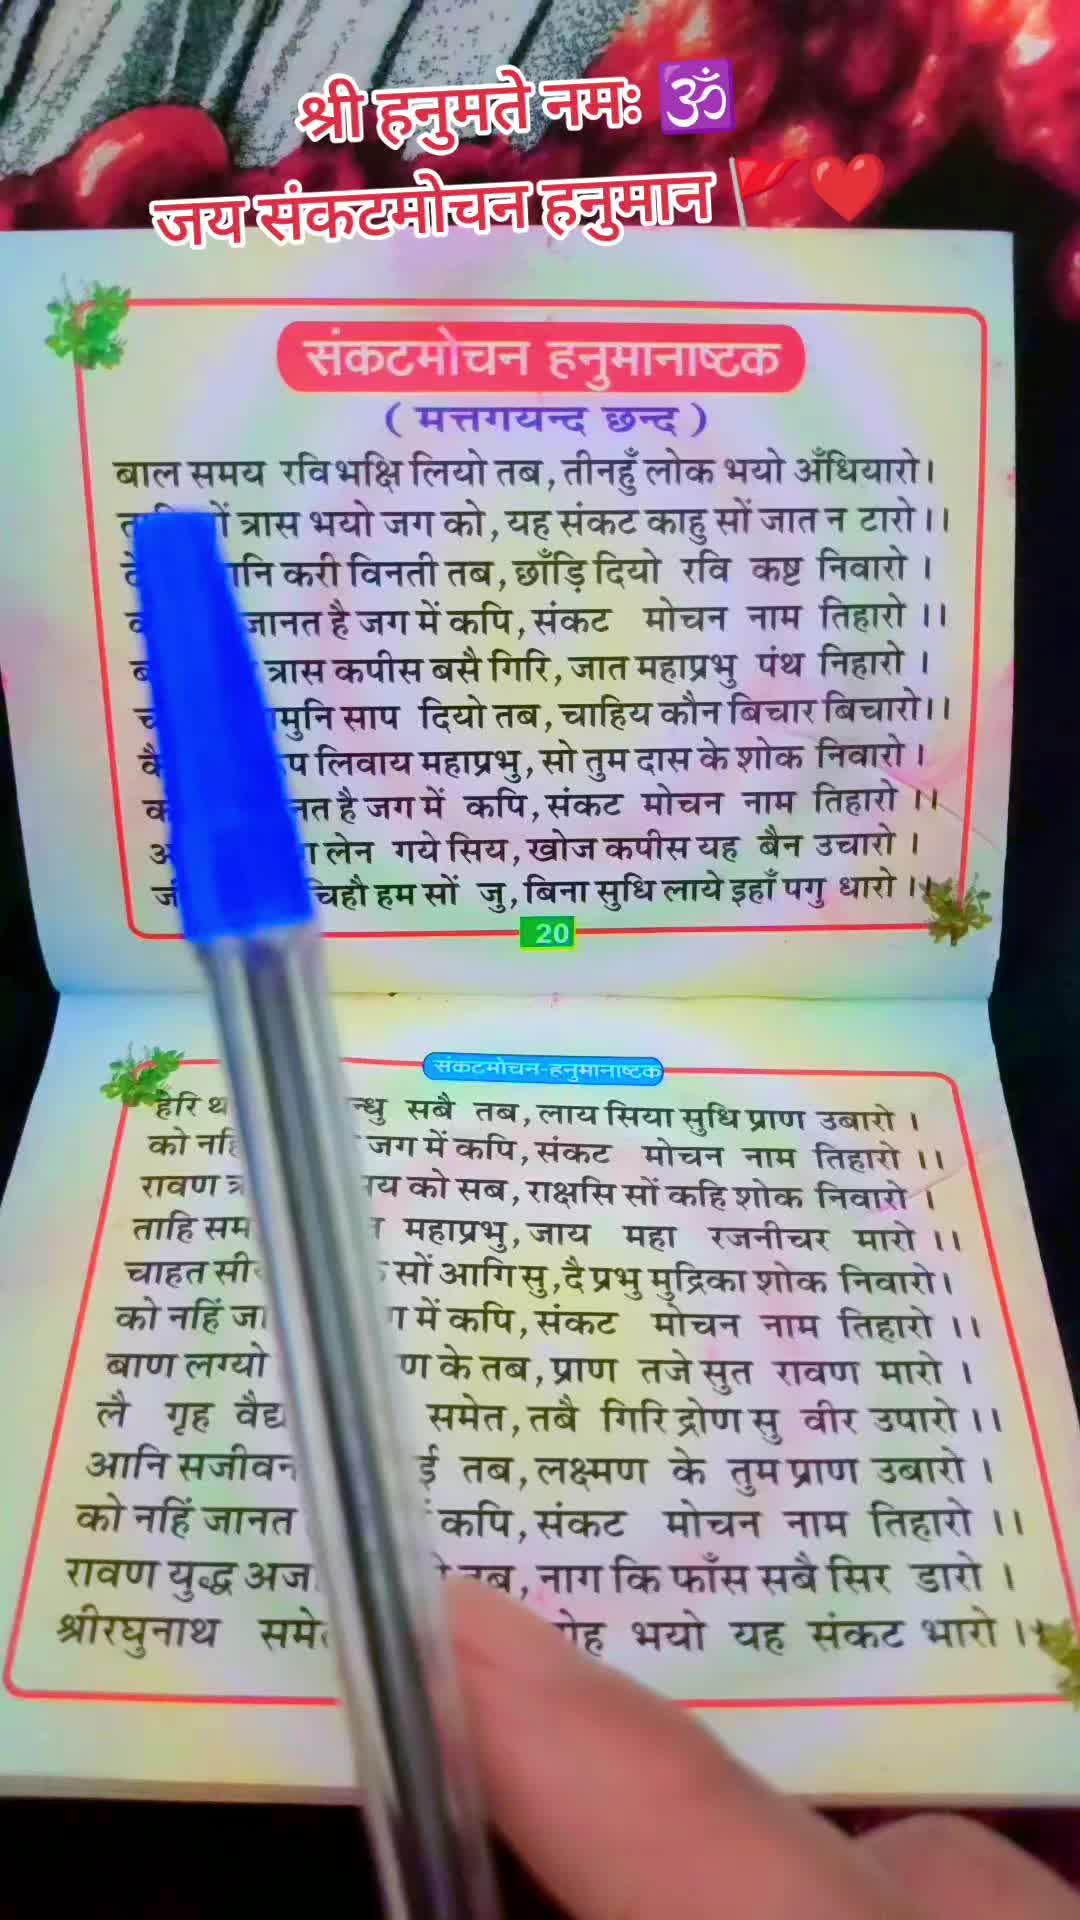 श्री हनुमते नमः 🕉️
जय संकटमोचन हनुमान 🚩❤️
संकटमोचन हनुमानाष्टक
( मत्तगयन्द छन्द )
बाल समय रवि भक्षि लियो तब, तीनहुँ लोक भयो अँधियारो।
त्रास भयो जग को, यह संकट काहु सों जात न टारो।।
करी विनती तब, छाँड़ि दियो रवि कष्ट निवारो ।
जानत है जग में कपि, संकट मोचन नाम तिहारो ।।
त्रास कपीस बसै गिरि, जात महाप्रभु पंथ निहारो ।
साप दियो तब, चाहिय कौन बिचार बिचारो।।
लिवाय महाप्रभु, सो तुम दास के शोक निवारो ।
है जग में कपि, संकट मोचन नाम तिहारो ।।
लेन गये सिय, खोज कपीस यह बैन उचारो ।
हम सों जु, बिना सुधि लाये इहाँ पगु धारो ।।
20
संकटमोचन-हनुमानाष्टक
हेरि सबै तब, लाय सिया सुधि प्राण उबारो ।
को जग में कपि, संकट मोचन नाम तिहारो ।।
रावण को सब, राक्षसि सों कहि शोक निवारो ।
ताहि महाप्रभु, जाय महा रजनीचर मारो ।।
चाहत सों आगि सु, दै प्रभु मुद्रिका शोक निवारो।
को नहिं में कपि, संकट मोचन नाम तिहारो ।।
बाण लग्यो के तब, प्राण तजे सुत रावण मारो ।
लै गृह समेत, तबै गिरि द्रोण सु वीर उपारो ।।
आनि तब, लक्ष्मण के तुम प्राण उबारो ।
को नहिं जानत कपि, संकट मोचन नाम तिहारो ।।
रावण युद्ध तब, नाग कि फाँस सबै सिर डारो ।
श्रीरघुनाथ भयो यह संकट भारो ।।